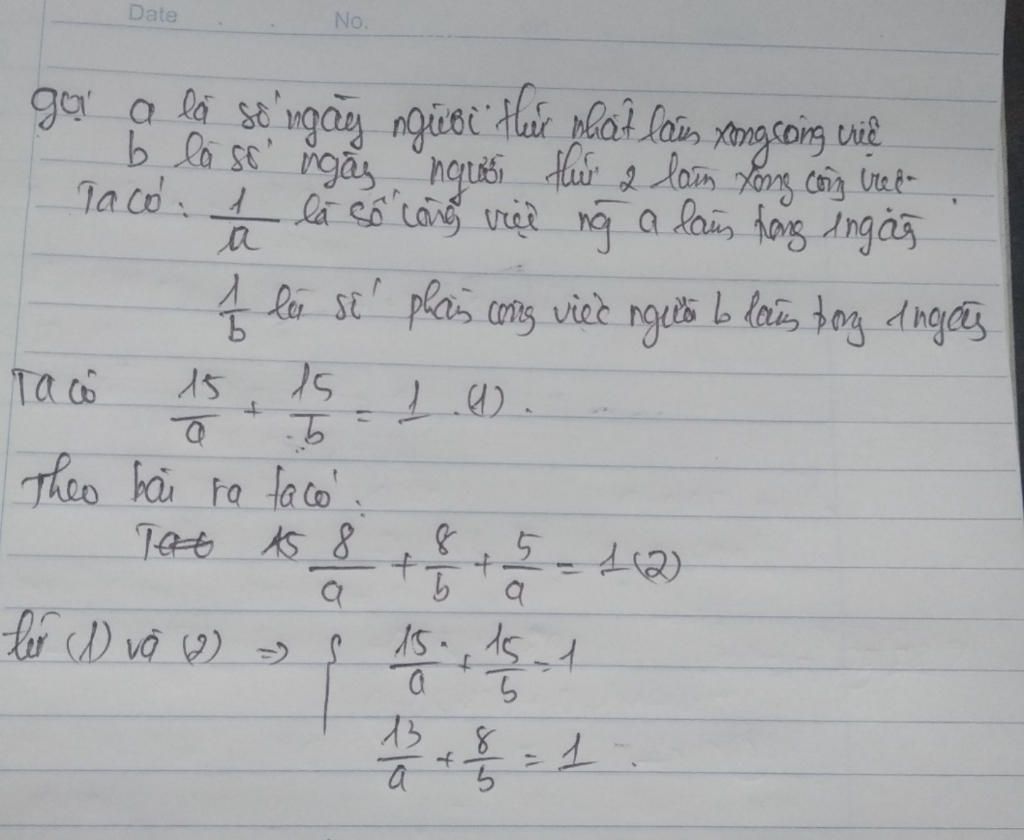 Date . . No.
gọi a là số ngày người thứ nhất làm xong công việc
b là số ngày người thứ 2 làm xong công việc.
Ta có: 1/a là số công việc ng a làm trong 1 ngày
1/b là số phần công việc người b làm trong 1 ngày
Ta có 15/a + 15/b = 1 (1).
Theo bài ra ta có:
8/a + 8/b + 5/a = 1 (2)
từ (1) và (2) => { 15/a + 15/b = 1
13/a + 8/b = 1.